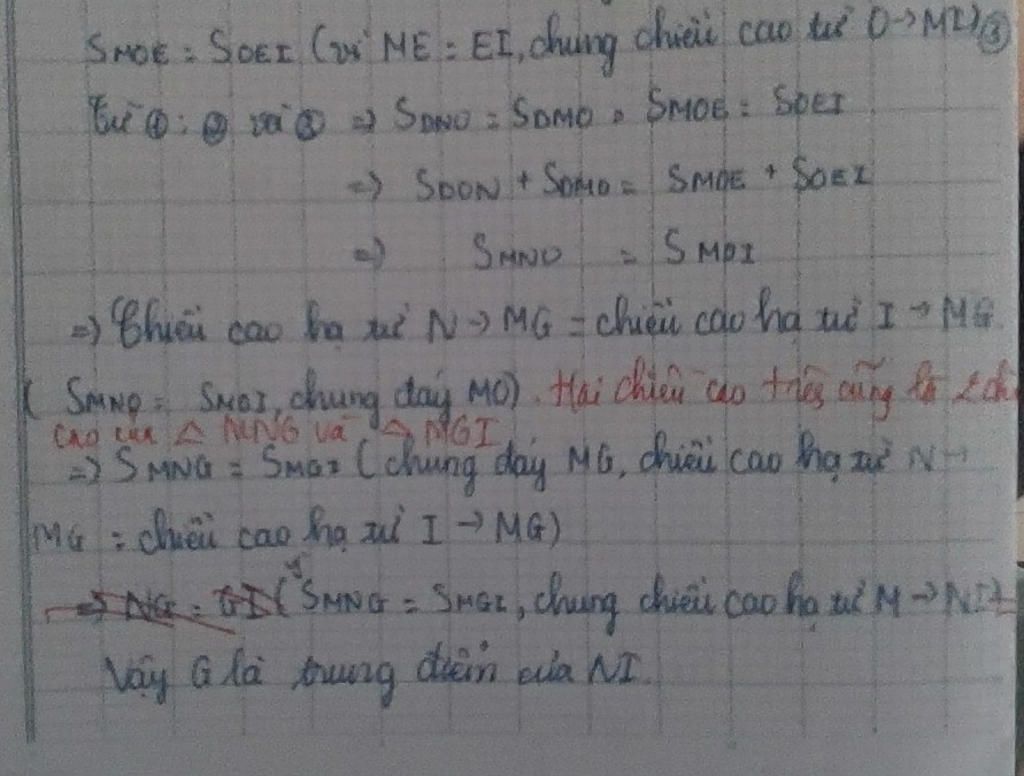 SMOE = SOEI (vì ME = EI, chung chiều cao từ O → MI) ③
Từ ①; ② và ③ => SDNO = SDMO = SMOE = SOEI
=> SDON + SDMO = SMOE + SOEI
=> SMNO = SMOI
=> Chiều cao hạ từ N → MG = chiều cao hạ từ I → MG
( SMNO = SMOI, chung đáy MO). Hai chiều cao trên cũng là 2 ch
cao của △ MNG và △ MGI
=> SMNG = SMGI (chung đáy MG, chiều cao hạ từ N →
MG = chiều cao hạ từ I → MG)
=> NG = GI (vì SMNG = SMGI, chung chiều cao hạ từ M → NI)
Vậy G là trung điểm của NI.